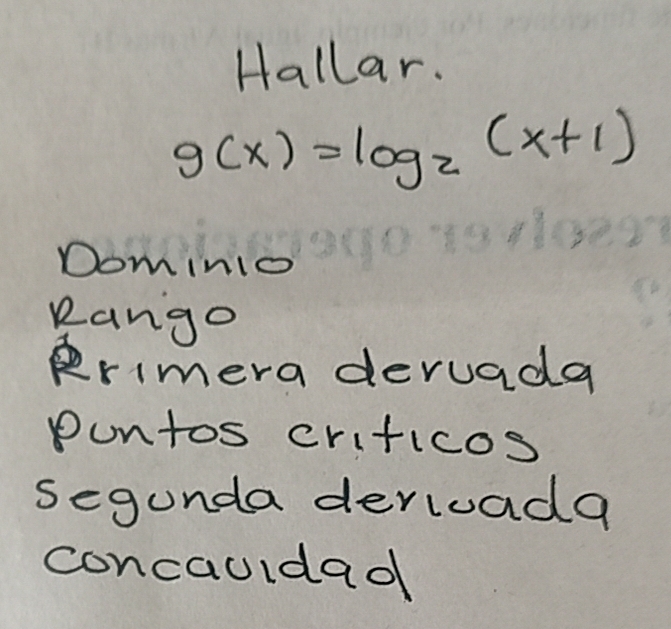 Hallar.
g(x) = log₂ (x+1)
Dominio
Rango
Primera derivada
puntos criticos
segunda derivada
concavidad